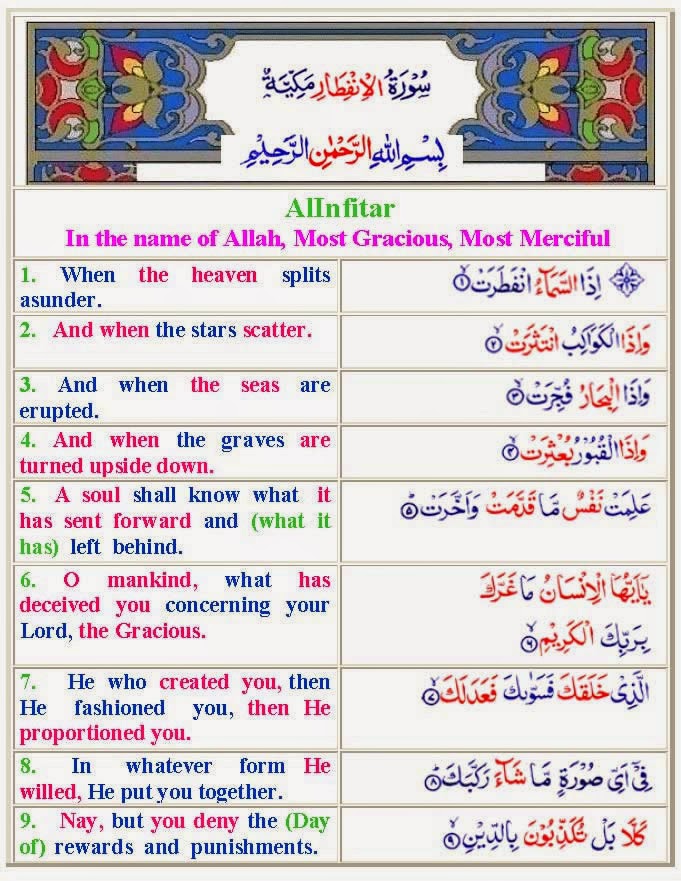 سُوْرَةُ الْاِنْفِطَارِ مَكِّيَّةٌ
بِسْمِ اللهِ الرَّحْمٰنِ الرَّحِيْمِ
AlInfitar
In the name of Allah, Most Gracious, Most Merciful
1. When the heaven splits
asunder.
اِذَا السَّمَآءُ انْفَطَرَتْ ۙ۱
2. And when the stars scatter.
وَاِذَا الْكَوَاكِبُ انْتَثَرَتْ ۙ۲
3. And when the seas are
erupted.
وَاِذَا الْبِحَارُ فُجِّرَتْ ۙ۳
4. And when the graves are
turned upside down.
وَاِذَا الْقُبُوْرُ بُعْثِرَتْ ۙ۴
5. A soul shall know what it
has sent forward and (what it
has) left behind.
عَلِمَتْ نَفْسٌ مَّا قَدَّمَتْ وَاَخَّرَتْ ؕ۵
6. O mankind, what has
deceived you concerning your
Lord, the Gracious.
يٰۤاَيُّهَا الْاِنْسَانُ مَا غَرَّكَ
بِرَبِّكَ الْكَرِيْمِ ۙ۶
7. He who created you, then
He fashioned you, then He
proportioned you.
الَّذِىْ خَلَقَكَ فَسَوّٰىكَ فَعَدَلَكَ ۙ۷
8. In whatever form He
willed, He put you together.
فِىْۤ اَىِّ صُوْرَةٍ مَّا شَآءَ رَكَّبَكَ ؕ۸
9. Nay, but you deny the (Day
of) rewards and punishments.
كَلَّا بَلْ تُكَذِّبُوْنَ بِالدِّيْنِ ۙ۹